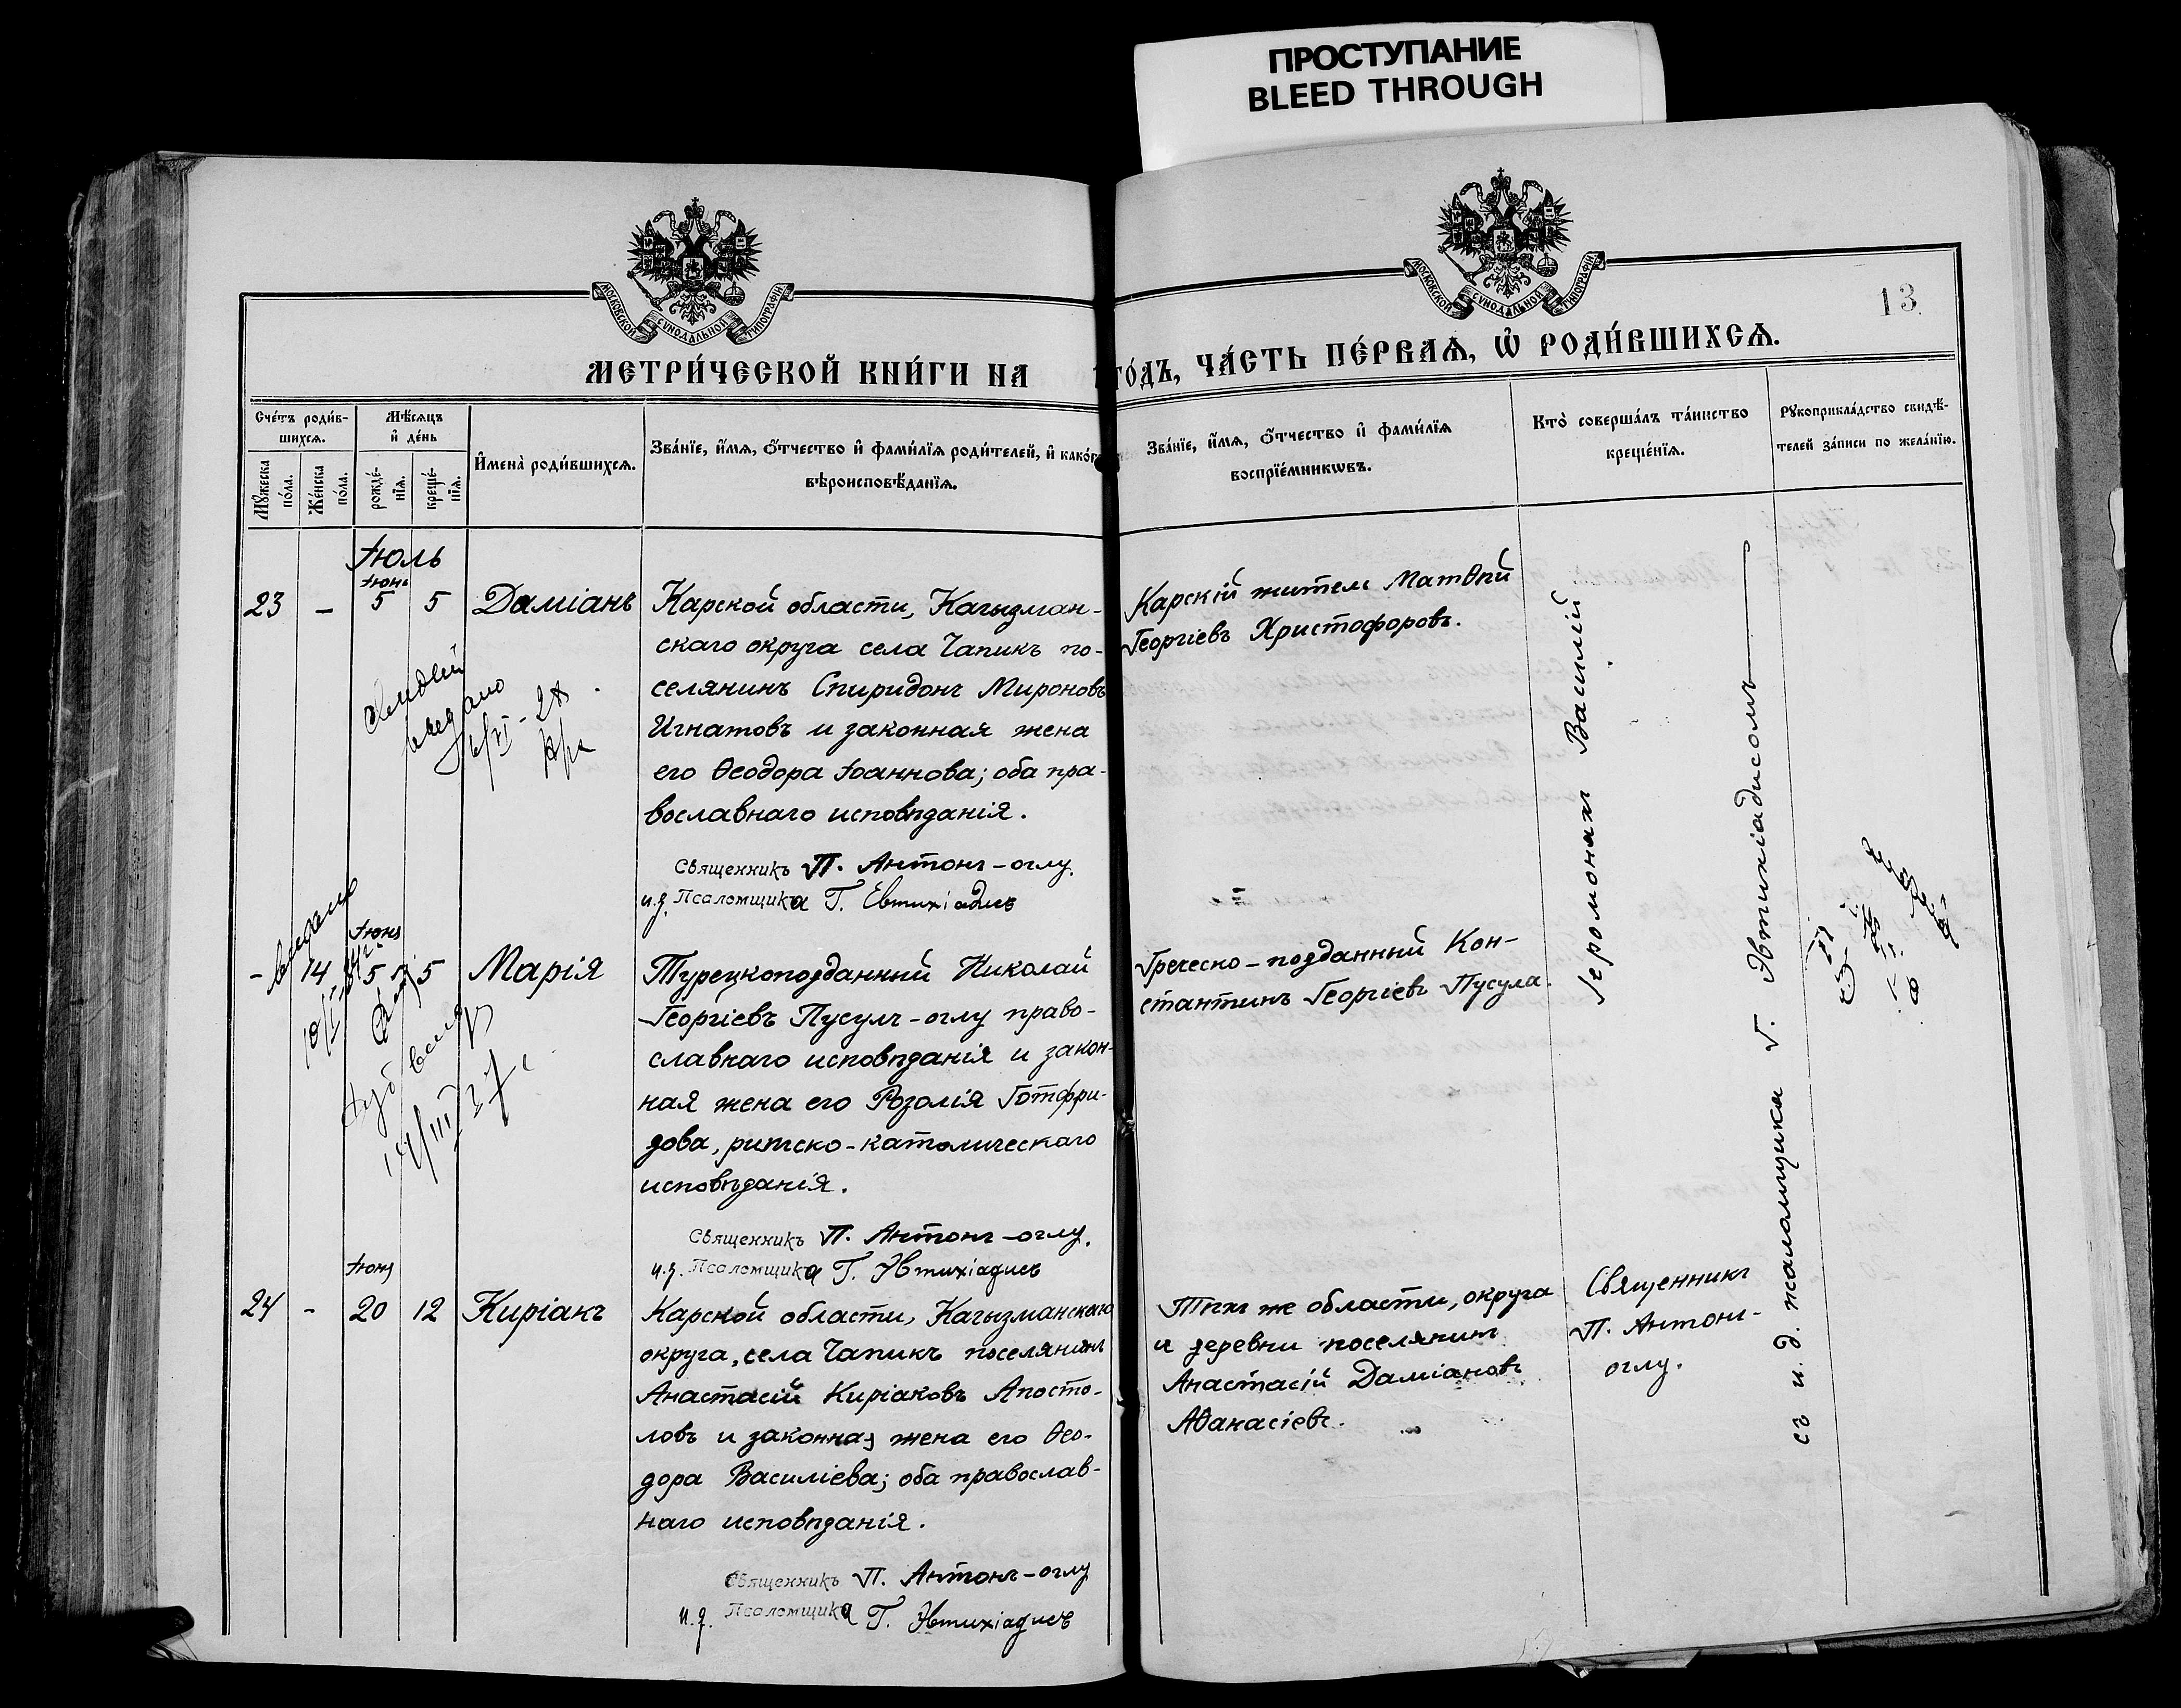 ПРОСТУПАНИЕ
BLEED THROUGH
МОСКОВСКОЙ СУНОДАЛЬНОЙ ТИПОГРАФІИ
МОСКОВСКОЙ СУНОДАЛЬНОЙ ТИПОГРАФІИ
13
МЕТРИ́ЧЕСКОЙ КНИ́ГИ НА
ГО́ДЪ, ЧА́СТЬ ПЕ́РВАѦ, Ѡ҆ РОДИ́ВШИХСѦ.
Сче́тъ роди́в-
шихсѧ.
Мѣ́сѧцъ
и҆ де́нь
Мꙋ́жеска
по́ла.
Же́нска
по́ла.
рожде́-
нїѧ.
креще́-
нїѧ.
И҆мена̀ роди́вшихсѧ.
Зва́нїе, и҆́мѧ, о҆́тчество и҆ фами́лїѧ роди́телей, и҆ како́г
вѣроисповѣ́данїѧ.
Зва́нїе, и҆́мѧ, о҆́тчество и҆ фами́лїѧ
воспрїе́мникѡвъ.
Кто̀ соверша́лъ та́инство
креще́нїѧ.
Рꙋкоприкла́дство свидѣ́-
телей за́писи по жела́нїю.
Іюль
Іюнь
23 – 5 5 Даміанъ
Карской области, Кагызман-
скаго округа села Чапикъ по-
селянинъ Спиридонъ Мироновъ
Игнатовъ и законная жена
его Ѳеодора Іоаннова; оба пра-
вославнаго исповѣданія.
Священникъ П. Антонъ-оглу.
и.д. Псаломщика Г. Евтихіадисъ
Карскій житель Матѳѣй
Георгіевъ Христофоровъ.
Іеромонахъ Василій
съ и. д. псаломщика Г. Эвтихіадисомъ
Іюня
– 14 5 5 Марія
Турецкоподданный Николай
Георгіевъ Пусулъ-оглу право-
славнаго исповѣданія и закон-
ная жена его Розалія Готфри-
дова, римско-католическаго
исповѣданія.
Священникъ П. Антонъ-оглу.
и.д. Псаломщика Г. Эвтихіадисъ
Греческо-подданный Кон-
стантинъ Георгіевъ Пусула.
14/III 37
Іюня
24 – 20 12 Киріакъ
Карской области, Кагызманскаго
округа, села Чапикъ поселянинъ
Анастасій Киріаковъ Апосто-
ловъ и законная жена его Ѳео-
дора Василіева; оба православ-
наго исповѣданія.
Священникъ П. Антонъ-оглу
и.д. Псаломщика Г. Эвтихіадисъ
Тѣхъ же области, округа
и деревни поселянинъ
Анастасій Даміановъ
Аѳанасіевъ.
Священникъ
П. Антонъ-
оглу.